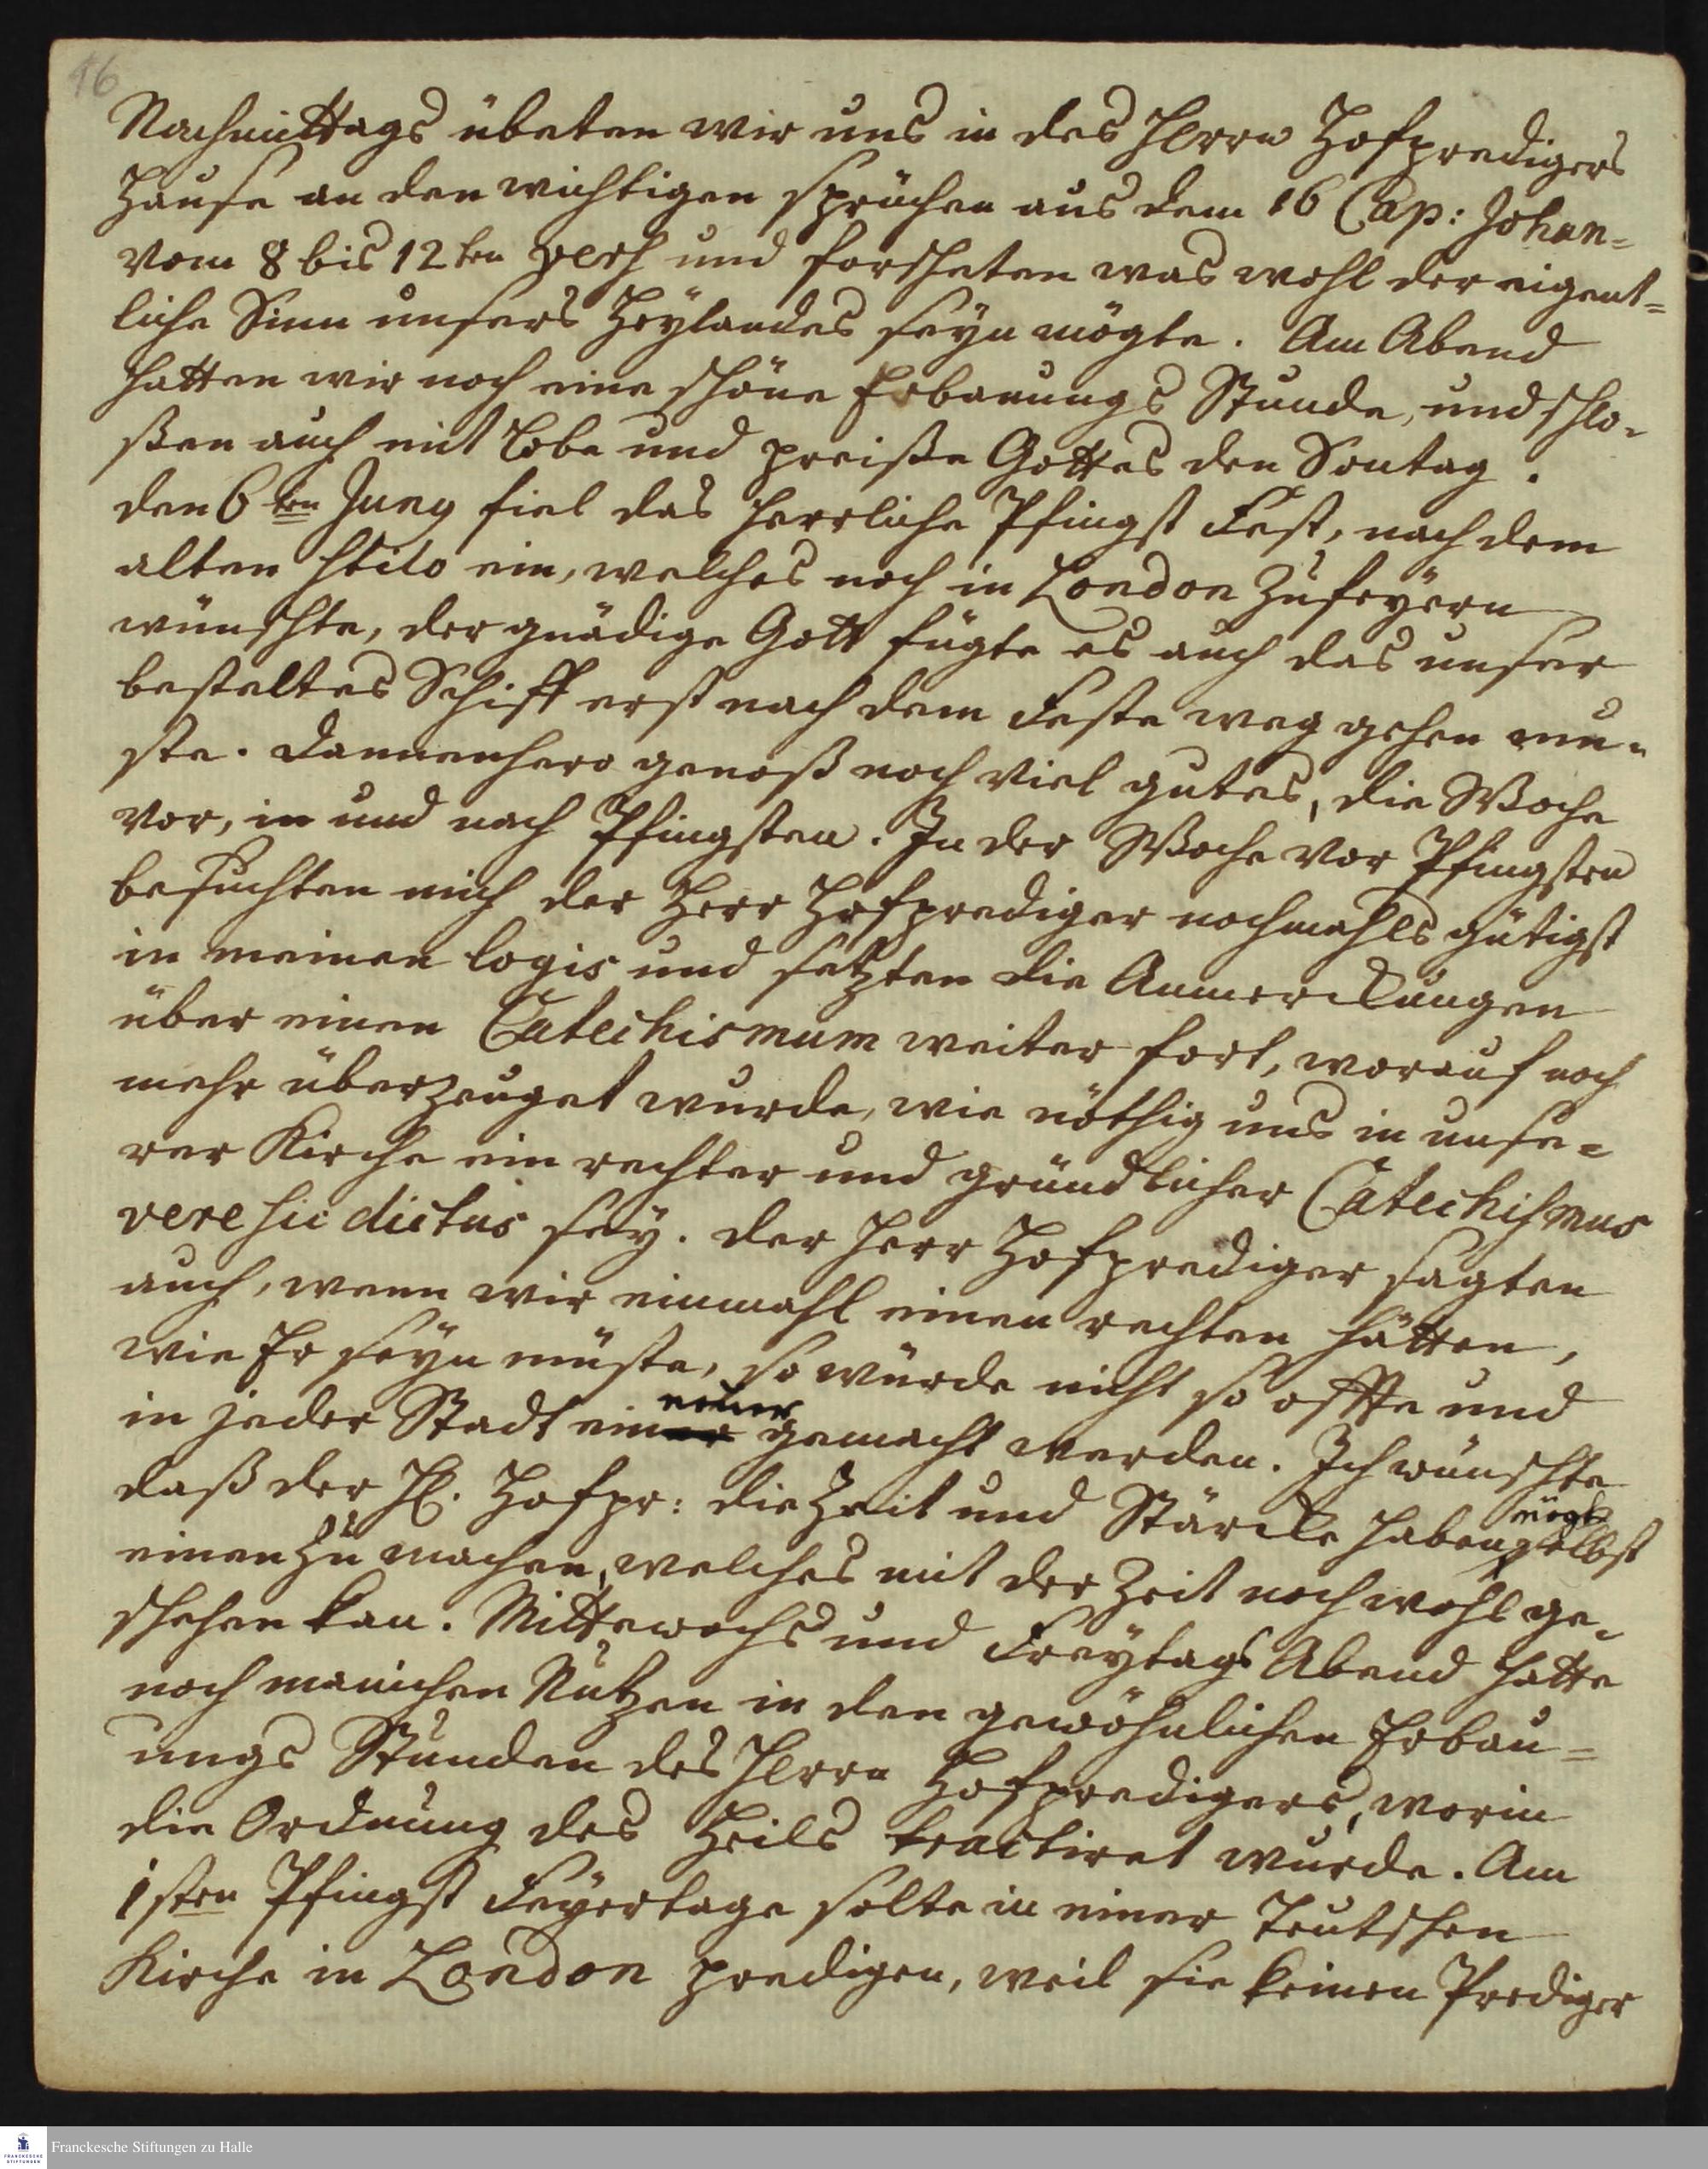 16
Nachmittags übeten wir uns in des Herrn Hofpredigers
Hause an den wichtigen sprüchen aus dem 16 Cap: Johan=
vom 8 bis 12ten vers und forscheten was wohl der eigent=
liche Sinn unsers Heÿlandes seÿn mögte. Am Abend
hatten wir noch eine schöne Erbauungs Stunde, und schlo=
ßen auch mit Lobe und preiße Gottes den Sontag.
den 6ten Juny fiel das herrliche Pfingst Fest, nach dem
alten stilo ein, welches noch in London zu feÿern
wünschte, der gnädige Gott fügte es auch das unser
bestaltes Schiff erst nach dem Feste weg gehen mu=
ste. Dannenhero genoß noch viel gutes, die Woche
vor, in und nach Pfingsten. In der Woche vor Pfingsten
besuchten mich der Herr Hofprediger nochmahls gütigst
in meinen logis und setzten die Anmerckungen
über einen Catechismum weiter fort, worauf noch
mehr überzeuget wurde, wie nöthig uns in unse=
rer Kirche ein rechter und gründlicher Catechismus
vere sic dictus seÿ. der Herr Hofprediger sagten
auch, wenn wir einmahl einen rechten hätten,
wie Er seÿn müste, so würde nicht so offte und
einer
in jeder Stadt einer gemacht werden. Ich wünschte
daß der H. Hofpr: die Zeit und Stärcke haben selbst
mögte
einen zu machen, welches mit der Zeit noch wohl ge=
schehen kan. Mittewochs und Freÿtags Abend hatte
noch manichen Nutzen in den gewöhnlichen Erbau=
ungs Stunden des Herrn Hofpredigers, worin
die Ordnung des Heils tractiret wurde. Am
1sten Pfingst Feÿertage solte in einer Teutschen
Kirche in London predigen, weil sie keinen Prediger
FRANCKESCHE STIFTUNGEN
Franckesche Stiftungen zu Halle